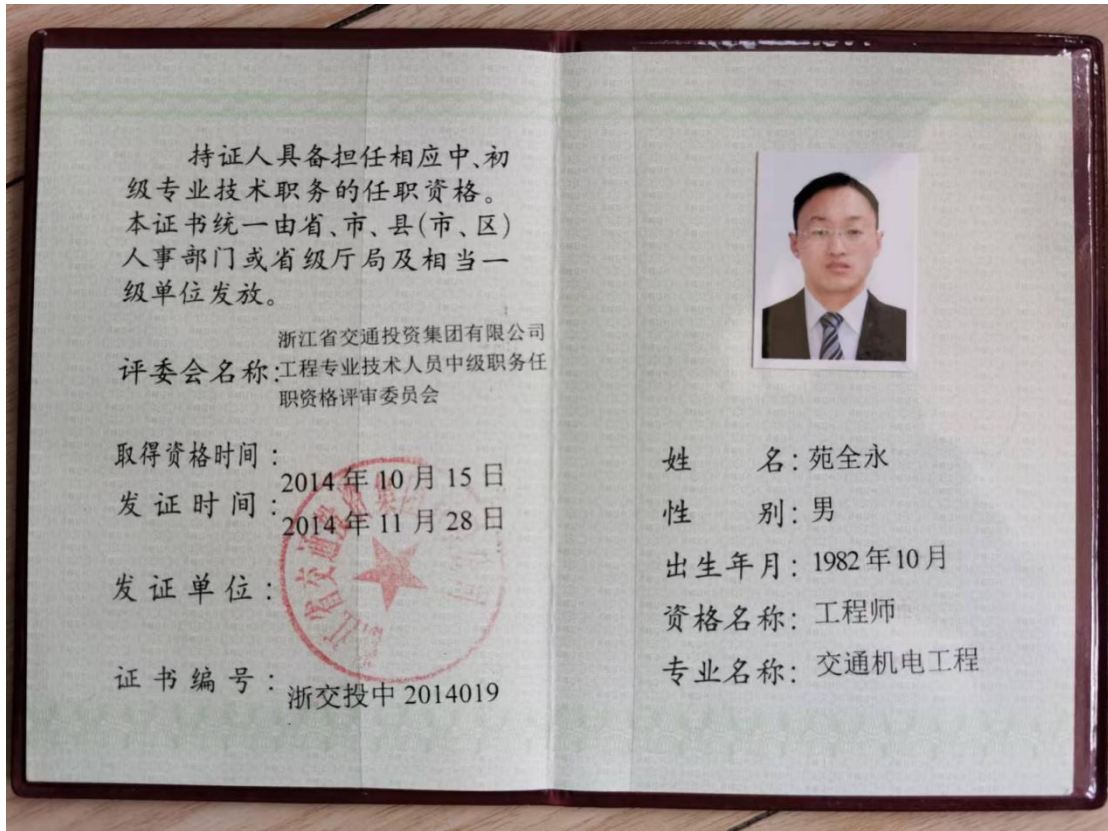 持证人具备担任相应中、初
级专业技术职务的任职资格。
本证书统一由省、市、县(市、区)
人事部门或省级厅局及相当一
级单位发放。
评委会名称:浙江省交通投资集团有限公司
工程专业技术人员中级职务任
职资格评审委员会
取得资格时间：2014 年 10 月 15 日
发证时间：2014 年 11 月 28 日
发证单位：
证书编号：浙交投中 2014019
姓 名：苑全永
性 别：男
出生年月：1982 年 10 月
资格名称：工程师
专业名称：交通机电工程